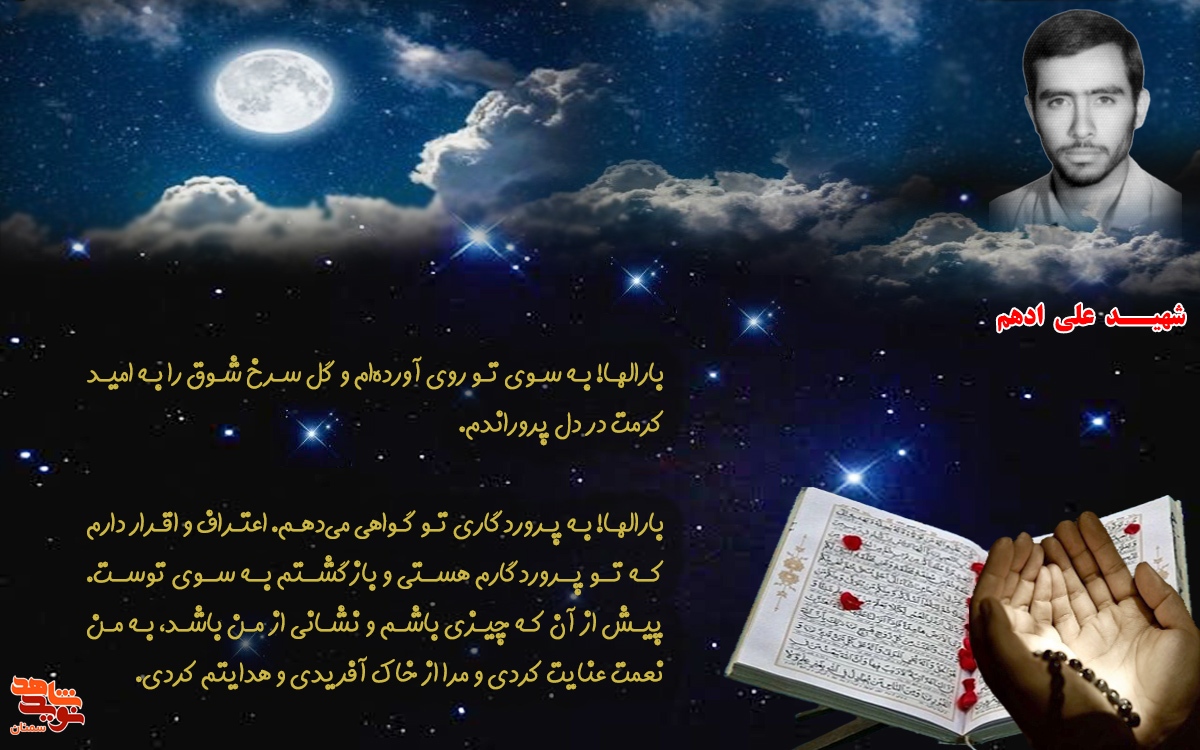 شهید علی ادهم
بارالها! به سوی تو روی آورده‌ام و گل سرخ شوق را به امید
کرمت در دل پروراندم.
بارالها! به پروردگاری تو گواهی می‌دهم. اعتراف و اقرار دارم
که تو پروردگارم هستی و بازگشتم به سوی توست.
پیش از آن که چیزی باشم و نشانی از من باشد، به من
نعمت عنایت کردی و مرا از خاک آفریدی و هدایتم کردی.
نوید شاهد
سمنان